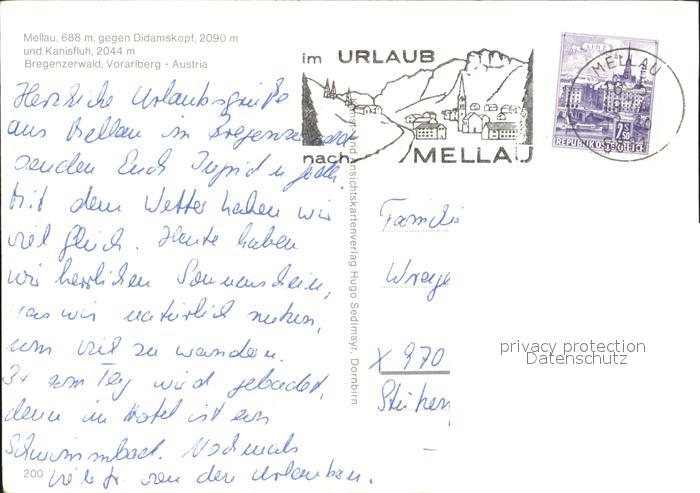 Mellau, 688 m, gegen Didamskopf, 2090 m
und Kanisfluh, 2044 m
Bregenzerwald, Vorarlberg - Austria
im URLAUB
nach MELLAU
LINZ
2.50
REPUBLIK ÖSTERREICH
MELLAU
Herzliche Urlaubsgrüße
aus Mellau im Bregenzerwald
senden Euch Ingrid u.
Mit dem Wetter haben wir
viel Glück. Heute haben
wir herrlichen Sonnenschein,
was wir natürlich nutzen,
um viel zu wandern.
3x am Tag wird gebadet,
denn im Hotel ist ein
Schwimmbad. Nochmals
viele Gr. von den Urlaubern.
200
Ansichtskartenverlag Hugo Sedlmayr, Dornbirn
Famili
X 970
privacy protection
Datenschutz